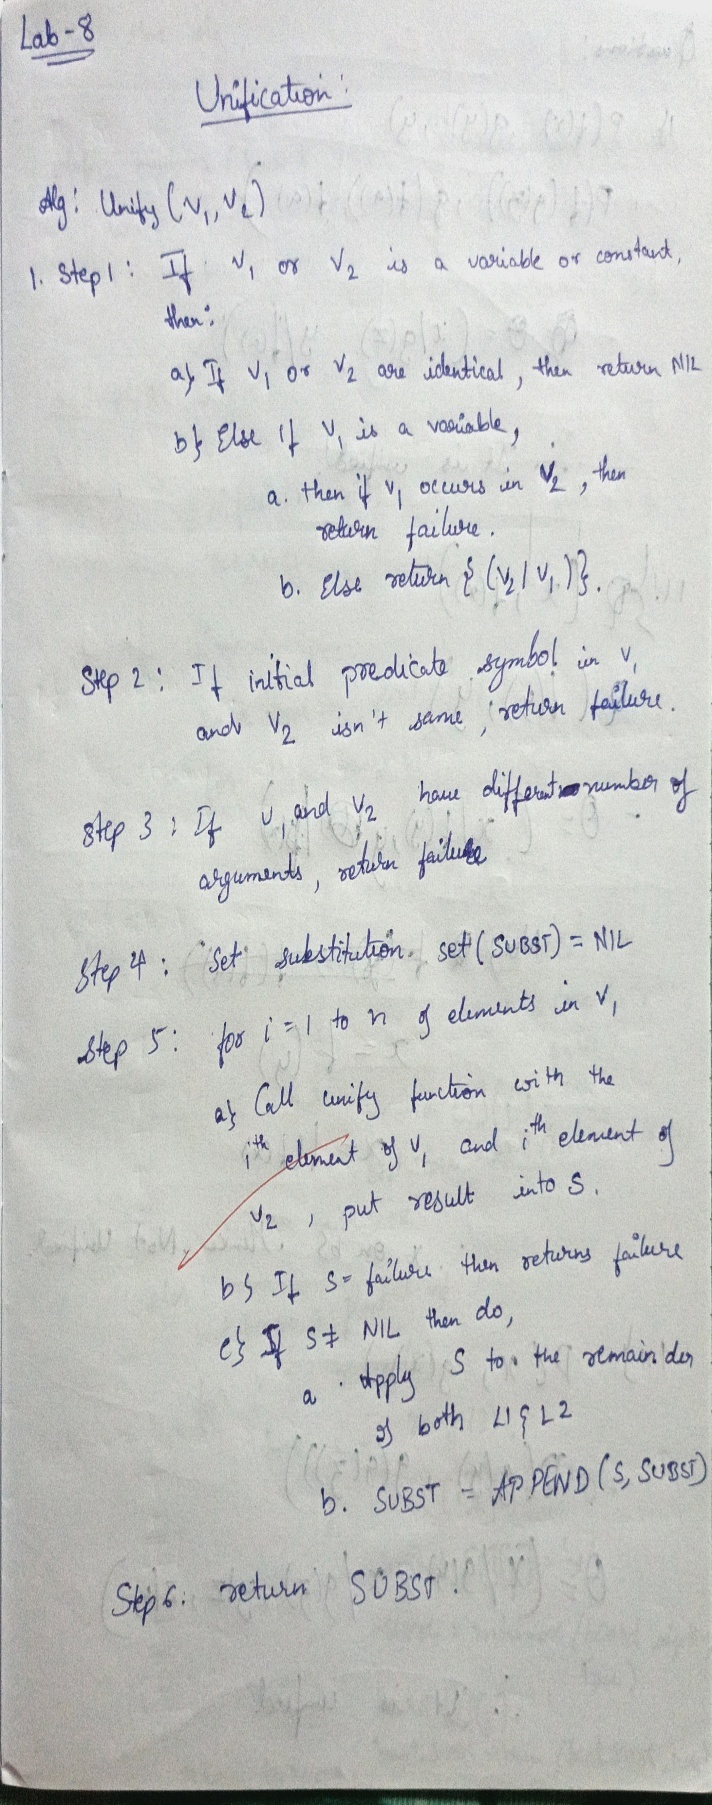 Lab-8
Unification:
Alg: Unify (V1, V2)
1. Step 1: If V1 or V2 is a variable or constant,
then:
a} If V1 or V2 are identical, then return NIL
b} Else if V1 is a variable,
a. then if V1 occurs in V2, then
return failure.
b. Else return { (V2 / V1) }.
Step 2: If initial predicate symbol in V1
and V2 isn't same, return failure.
Step 3: If V1 and V2 have different number of
arguments, return failure
Step 4: Set substitution set (SUBST) = NIL
Step 5: for i = 1 to n of elements in V1
a} Call unify function with the
ith element of V1 and ith element of
V2, put result into S.
b} If S = failure then returns failure
c} If S ≠ NIL then do,
a. Apply S to the remainder
of both L1 & L2
b. SUBST = APPEND (S, SUBST)
Step 6: return SUBST.